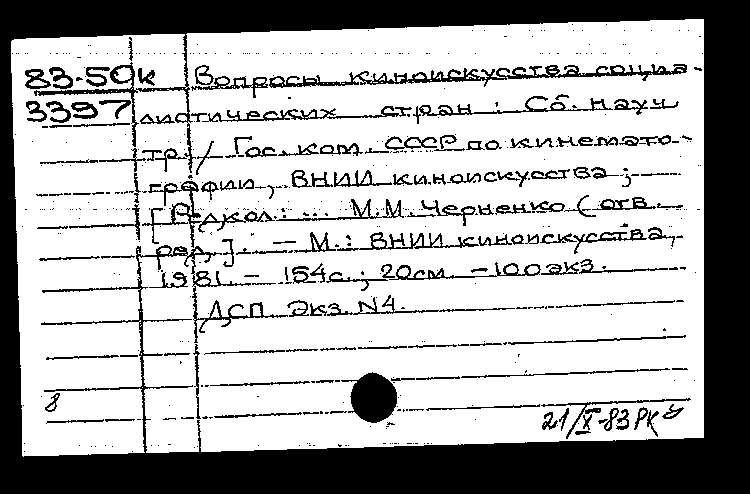 83-50к Вопросы киноискусства социа-
3397 листических стран: Сб. науч
тр. / Гос. ком. СССР по кинемато-
графии, ВНИИ киноискусства;
[Ред.кол.: ... М.М. Черненко (отв.
ред.]. - М.: ВНИИ киноискусства,
1981. - 154с.; 20см. - 100экз.
ДСП Экз. N4.
8
21/X-83 РК